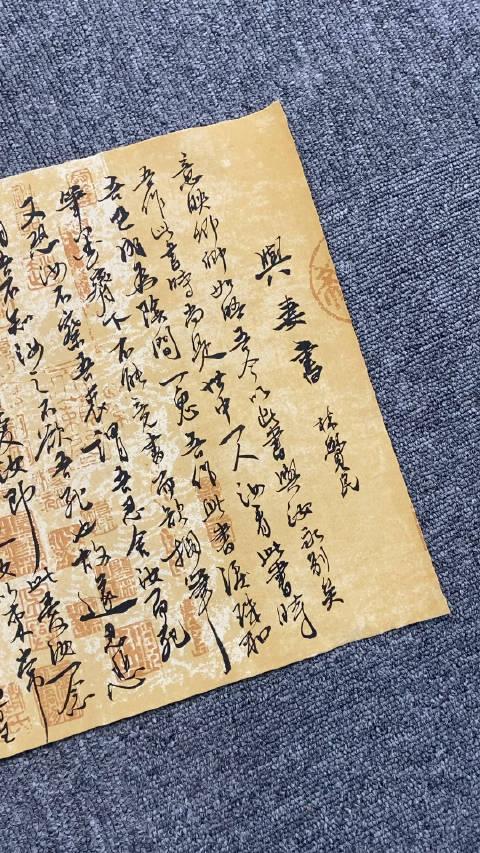 與妻書
林覺民
意映卿卿如晤吾今以此書與汝永別矣
吾作此書時尚是世中一人汝看此書時
吾已成為陰間一鬼吾作此書淚珠和
筆墨齊下不能竟書而欲擱筆
又恐汝不察吾衷謂吾忍舍汝而死
吾不知汝之不欲吾死也故遂忍悲
愛汝即此愛汝一念